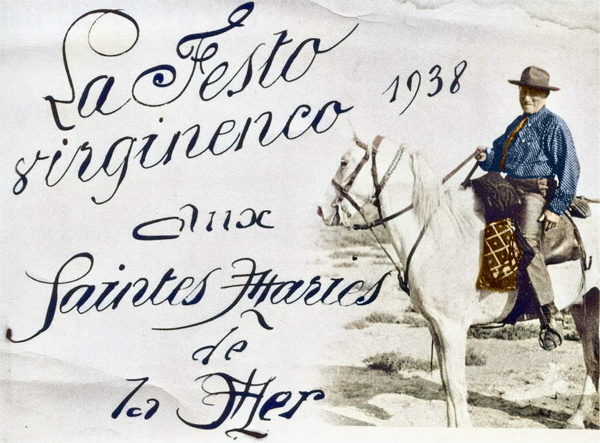 La Festo
virginenco 1938
aux
Saintes Maries
de
la Mer